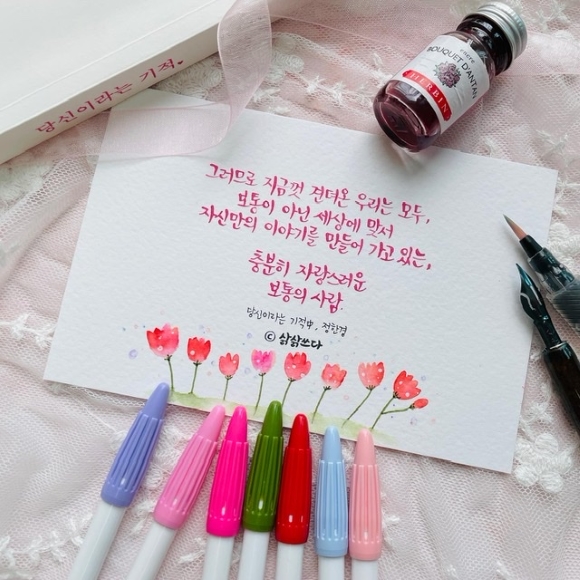 당신이라는 기적
그러므로 지금껏 견뎌온 우리는 모두,
보통이 아닌 세상에 맞서
자신만의 이야기를 만들어 가고 있는,
충분히 자랑스러운
보통의 사람.
당신이라는 기적中, 정한경
© 삶삶쓰다
BOUQUET D'ANTAN
HERBIN